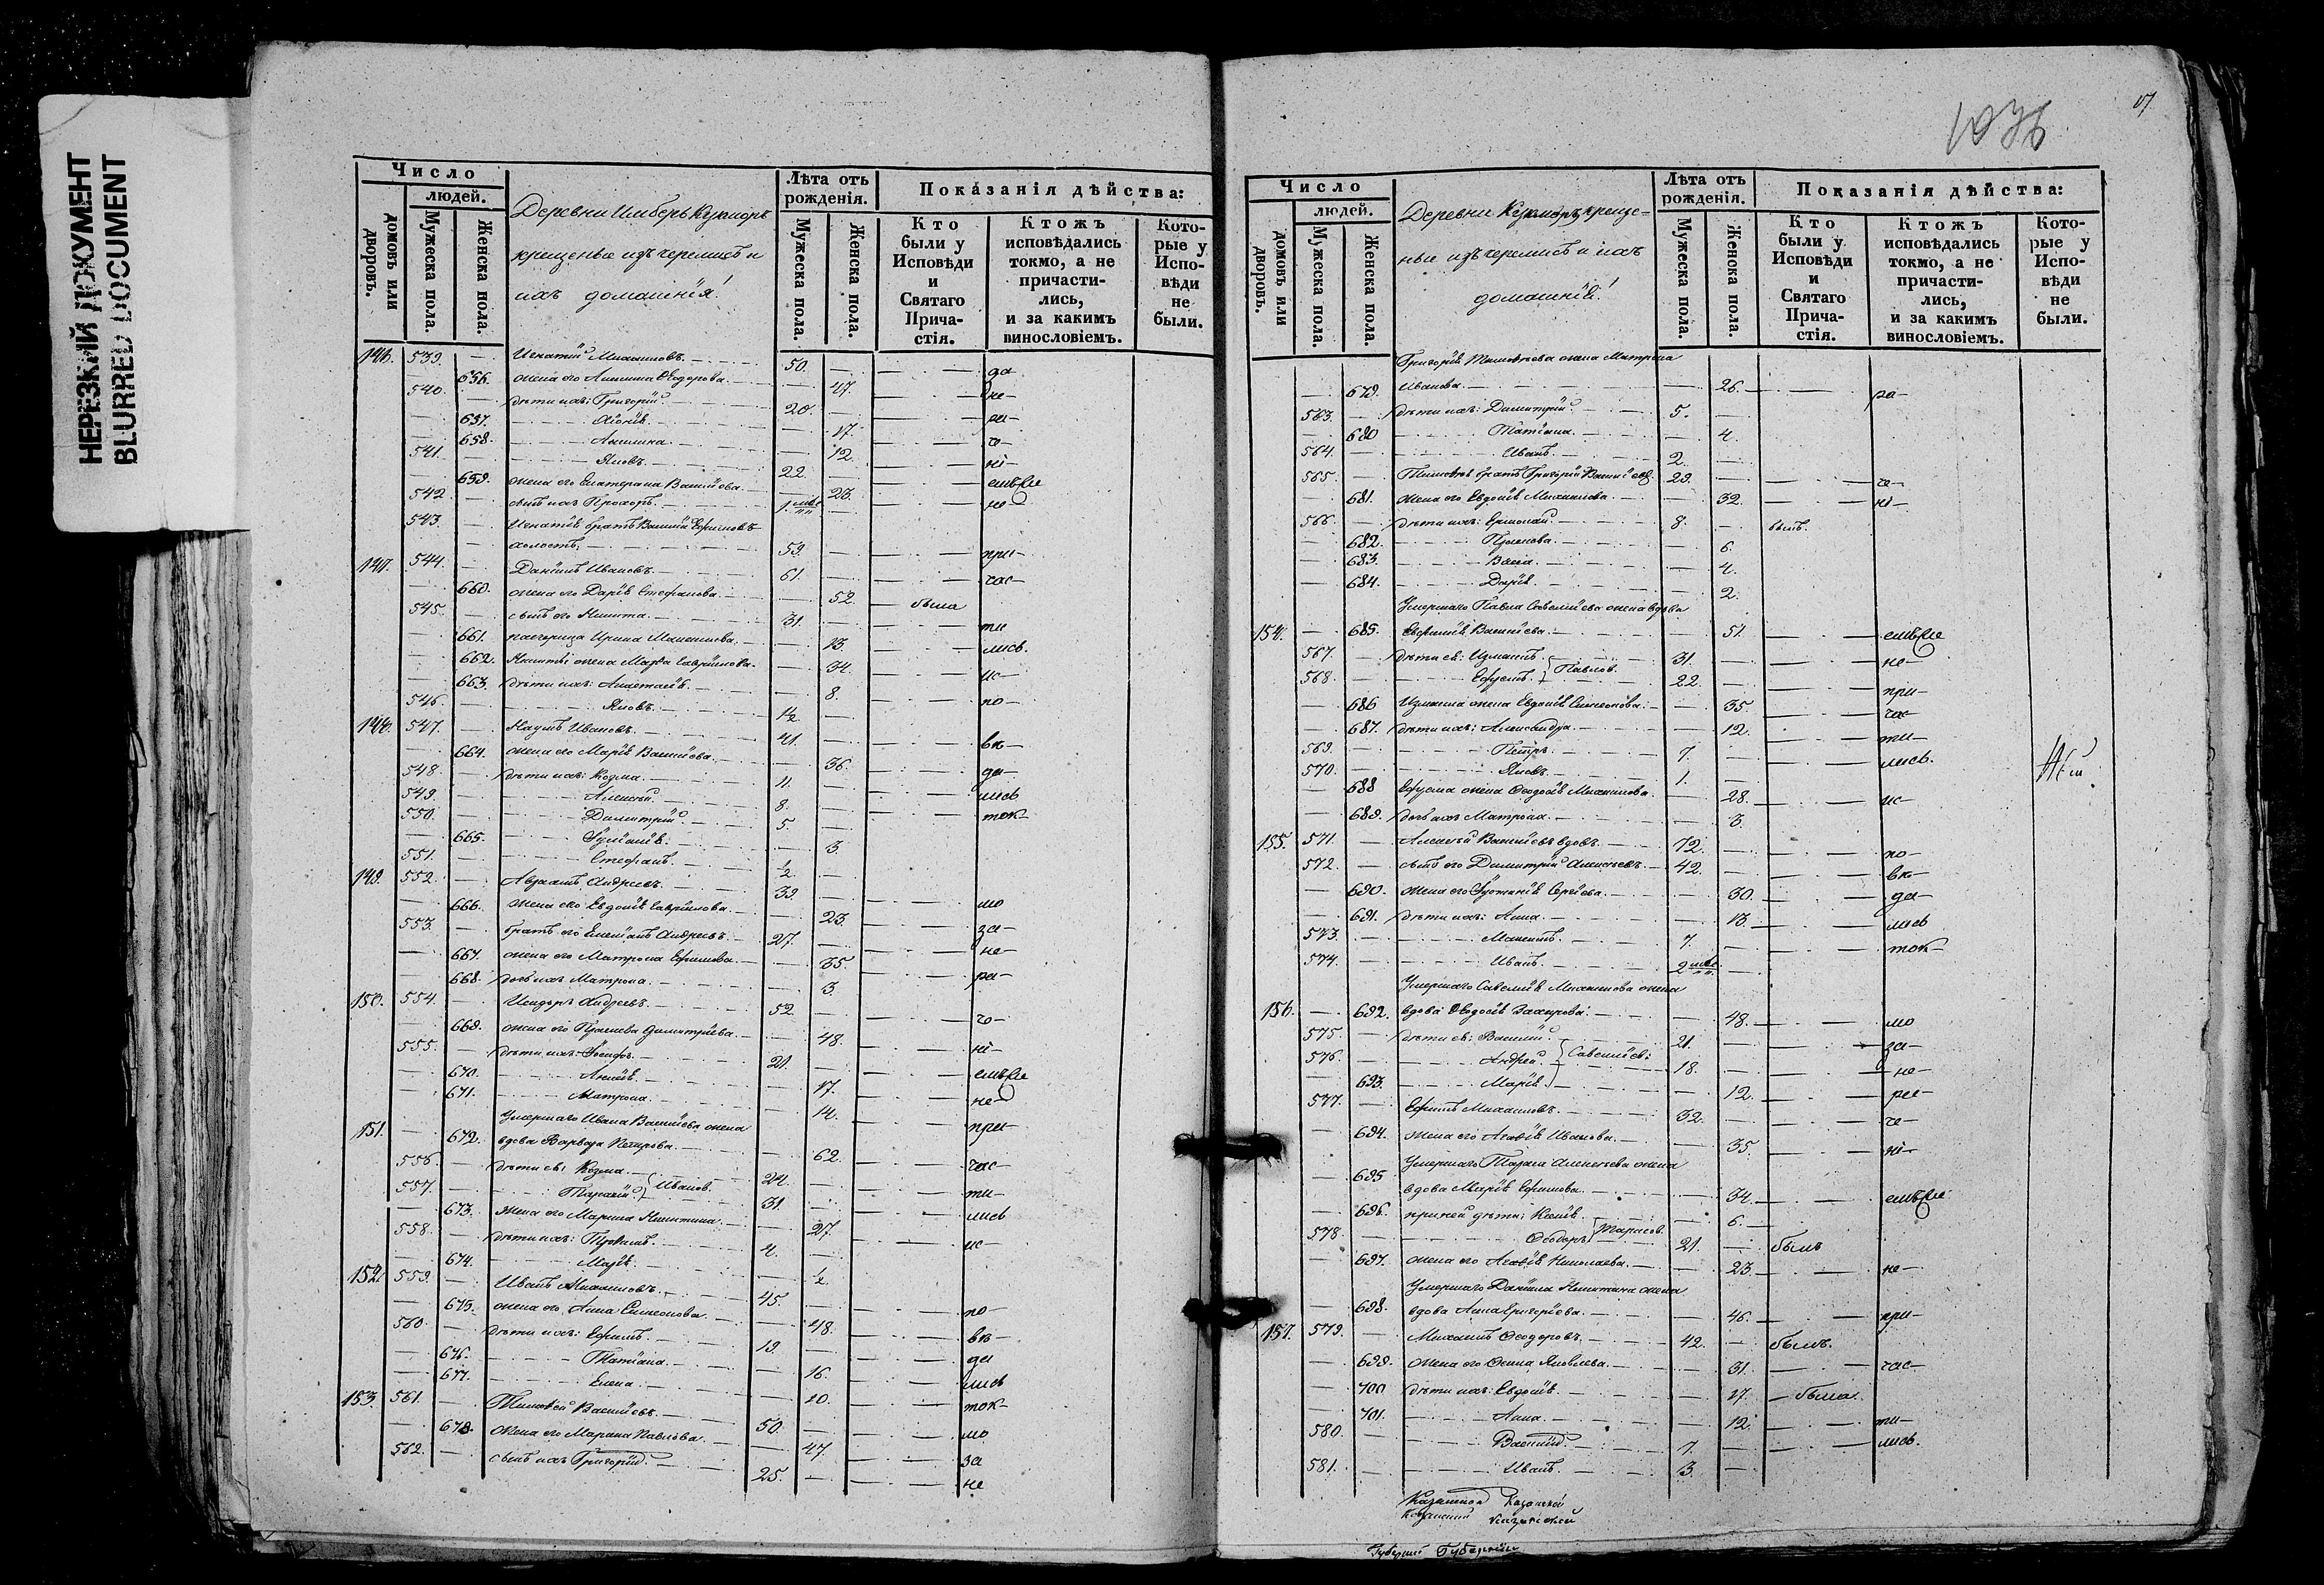 НЕРЕЗКИЙ ДОКУМЕНТ
BLURRED DOCUMENT
Число
людей.
домовъ или дворовъ.
Мужеска пола.
Женска пола.
Деревни Имберь Кужморъ
крещеные изъ черемисъ и
ихъ домашнія:
Лѣта отъ рожденія.
Мужеска пола.
Женска пола.
Показанія дѣйства:
Кто были у Исповѣди и Святаго Прича-стія.
Ктожъ исповѣдались токмо, а не причасти-лись, и за какимъ винословіемъ.
Кото-рые у Испо-вѣди не были.
539. Игнатій Михаиловъ. 50. да
656. жена его Акилина Ѳеодорова. 47. не
540. дѣти ихъ: Григорій. 20.
657. 17.
658. Акилина. 12.
541. Яковъ. 22.
659. жена его Екатерина Васильева. 23. не
542. сынъ ихъ Прохоръ. 1
543. Игнатія братъ Василій Ефимовъ
холостъ. 59. при
147. 544. Даніилъ Ивановъ. 61. час
660. жена его Дарія Стефанова. 52. была
545. сынъ его Никита. 31. ти
661. Ирина 13. лись.
662. Никиты жена Марѳа Гавриилова. 34. ис
663. дѣти ихъ: Анастасія. 8. по
546. Яковъ. 1/2
148. 547. Наумъ Ивановъ. 41. вѣ
664. жена его Марія Васильева. 36. да
548. дѣти ихъ: Козма. 11. лись
549. Алексѣй. 8. ток
550. Димитрій. 5.
665. Іуліанія. 3.
551. Стефанъ. 1/2
149. 552. Авраамъ Андреевъ. 39. мо
666. жена его Евдокія Гавриилова. 23. за
553. братъ его Емеліанъ Андреевъ. 27. не
667. жена его Матрона Ефимова. 35. ра
668. дочь ихъ Матрона. 3.
150. 554. Исидоръ Андреевъ. 52.
669. жена его Параскева Димитріева. 48.
555. дѣти ихъ: Іосифъ. 21.
670. 17. не
671. Матрона. 14. при
Умершаго Ивана Васильева жена
151. 672. вдова Варвара Петрова. 62. час
556. дѣти ея: Козма. 24. ти
557. Тарасій. Иванов. 31. лись
673. жена его Марина Никитина. 27. ис
558. дѣти ихъ: 4.
674. Марія. 1/2
152. 559. Иванъ Михаиловъ. 45. по
675. жена его Анна Симеонова. 48. вѣ
560. дѣти ихъ: Ефимъ. 19 да
676. Татіана. 16. лись
677. Елена. 10. ток
153. 561. Тимоѳей Васильевъ. 50. мо
678. жена его Марина Павлова. 47. за
562. сынъ ихъ Григорій. 25. не
1036
Число
людей.
домовъ или дворовъ.
Мужеска пола.
Женска пола.
Деревни Кужморъ креще-
ные изъ черемисъ и ихъ
домашнія:
Лѣта отъ рожденія.
Мужеска пола.
Женска пола.
Показанія дѣйства:
Кто были у Исповѣди и Святаго Прича-стія.
Ктожъ исповѣдались токмо, а не причасти-лись, и за какимъ винословіемъ.
Кото-рые у Испо-вѣди не были.
Григорія Тимоѳеева жена Матрона
679. Иванова. 26. ра
563. дѣти ихъ: Димитрій. 5.
680 Татіана. 4.
564. Иванъ. 2.
565. Тимоѳея братъ Григорій Васильевъ. 29.
681. жена его Евдокія Михаилова. 32.
566. дѣти ихъ: Ермолай. 8. былъ.
682. 6.
683. Васса. 4.
684. Дарія. 2.
Умершаго Павла Савельева жена вдова
154. 685. Евфимія Васильева. 51.
567. дѣти ея: Измаилъ. 31. не
568. Павлов. 22. при
686 Измаила жена Евдокія Симеонова. 35. час
687. дѣти ихъ: Александра. 12. ти
569. Петръ. 7. лись.
570. Яковъ. 1.
688 жена Ѳеодосія Михаилова. 28. ис
689. дочь ихъ Матрона. 3.
155. 571. Алексѣй Васильевъ вдовъ. 72. по
572. сынъ его Димитрій Алексѣевъ. 42. вѣ
690. жена его Іустинія Сергѣева. 30. да
691. дѣти ихъ: Анна. 13. лись
573. Максимъ. 7. ток
574. Иванъ. 2
Умершаго Савелія Михаилова жена
156. 692. вдова Ѳеодосія Захарова. 48. мо
575. дѣти ея: Василій. 21. за
576. Андрей. Савельев: 18. не
693. Марія. 12. ра
577. Ефимъ Михаиловъ. 32.
694. жена его Агафія Иванова. 35.
Умершаго Тарасія Алексѣева жена
695 вдова Марія Ефимова. 34.
696. при ней дѣти: Ксенія. 6.
578. Ѳеодоръ. Тарасов. 21. былъ
697. жена его Агафія Николаева. 23. не
Умершаго Даніила Никитина жена
698. вдова Анна Григорьева. 46. при
157. 579. Михаилъ Ѳеодоровъ. 42. былъ.
699. жена его Яковлева. 31. час
700 дѣти ихъ: Евдокія. 17. была.
701. Анна. 12. ти
580. Василій. 7. лись.
581. Иванъ. 3.
Казанской Казанской
Казанской Казанской
Губерніи Губерніи